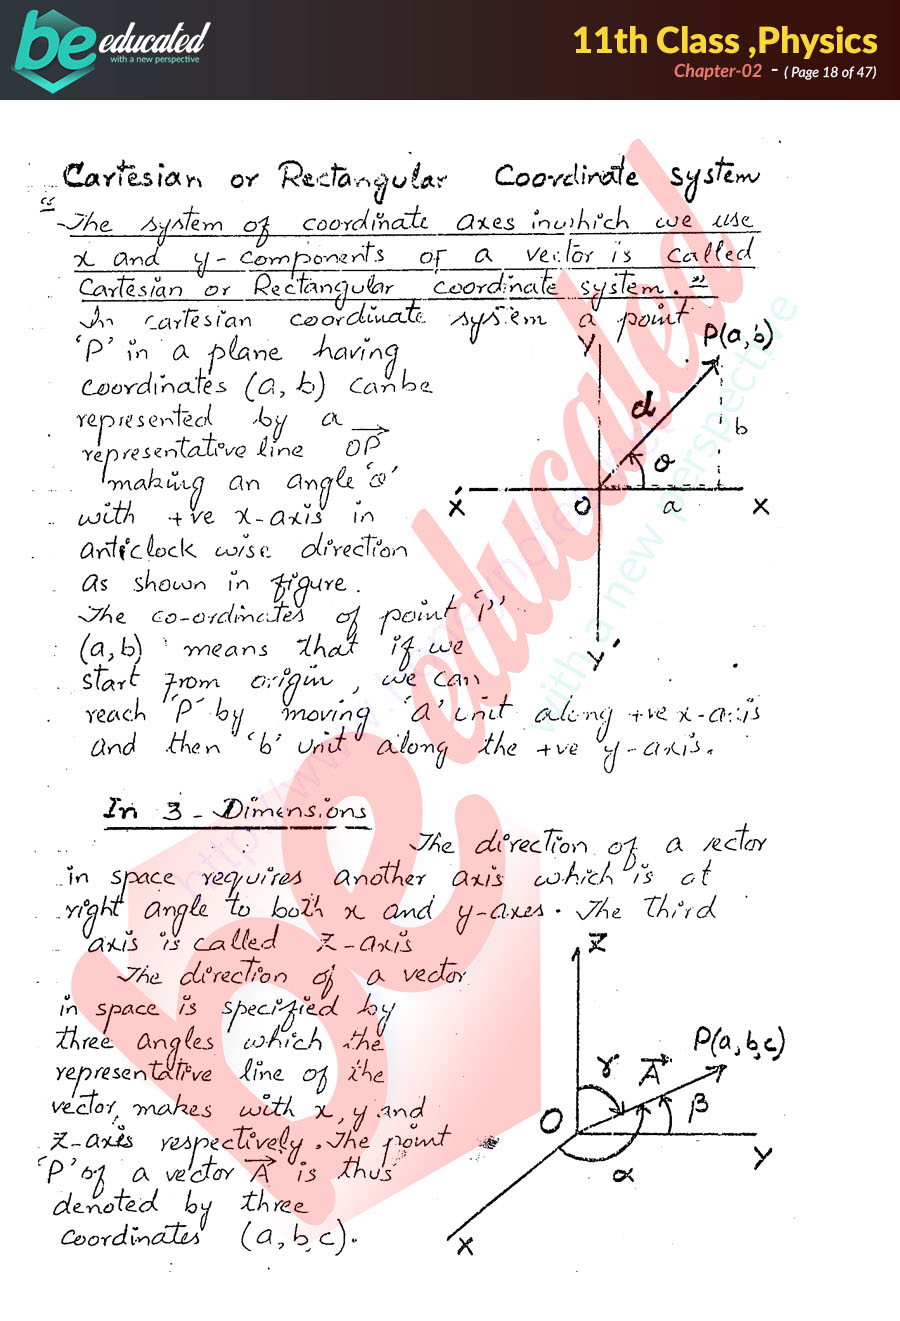 be educated
with a new perspective
11th Class ,Physics
Chapter-02 - ( Page 18 of 47)
Cartesian or Rectangular Coordinate system
“The system of coordinate axes inwhich we use
x and y-components of a vector is called
Cartesian or Rectangular coordinate system.”
In cartesian coordinate system a point
‘P’ in a plane having
coordinates (a, b) canbe
represented by a
representative line OP
making an angle ‘θ’
with +ve x-axis in
anticlock wise direction
as shown in figure.
The co-ordinates of point ‘P’
(a, b) means that if we
start from origin, we can
reach ‘P’ by moving ‘a’ unit along +ve x-axis
and then ‘b’ unit along the +ve y-axis.
Y
P(a, b)
d
b
θ
X́
O
a
X
Y
In 3-Dimensions
The direction of a vector
in space requires another axis which is at
right angle to both x and y-axes. The third
axis is called Z-axis
The direction of a vector
in space is specified by
three angles which the
representative line of the
vector, makes with x, y and
Z-axis respectively. The point
‘P’ of a vector A is thus
denoted by three
coordinates (a, b, c).
Z
P(a, b, c)
γ
A
β
O
Y
α
X
be educated
with a new perspective